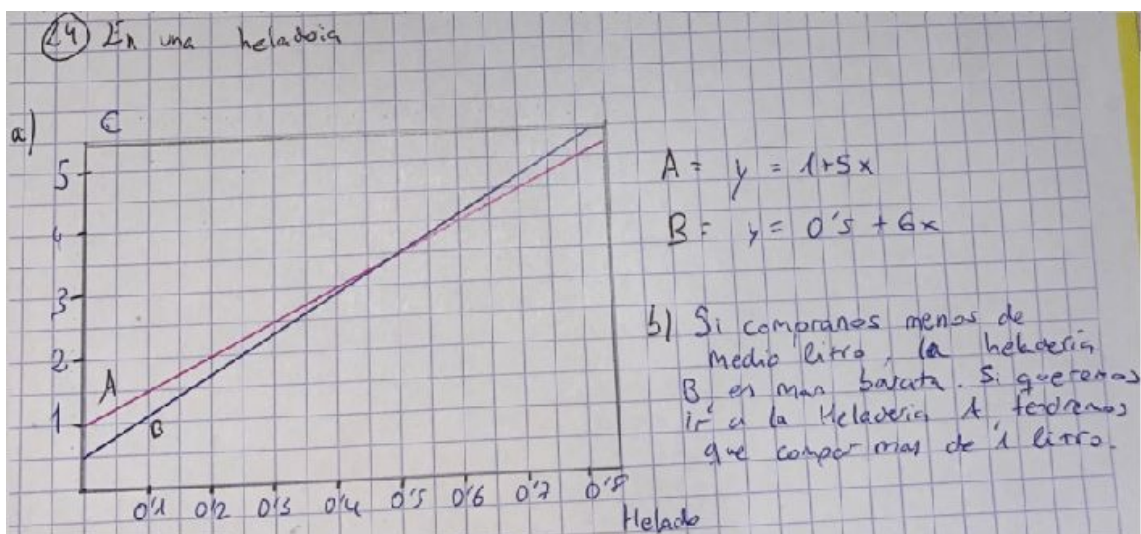 24) En una heladoia
a) €
5
4
3
2
1
A
B
0'1 0'2 0'3 0'4 0'5 0'6 0'7 0'8
Helado
A = y = 1+5x
B = y = 0's + 6x
b) Si compranos menos de
medio litro, la heladeria
B es mas barata. Si queremos
ir a la Heladeria A, tendremos
que compar mas de 1 litro.